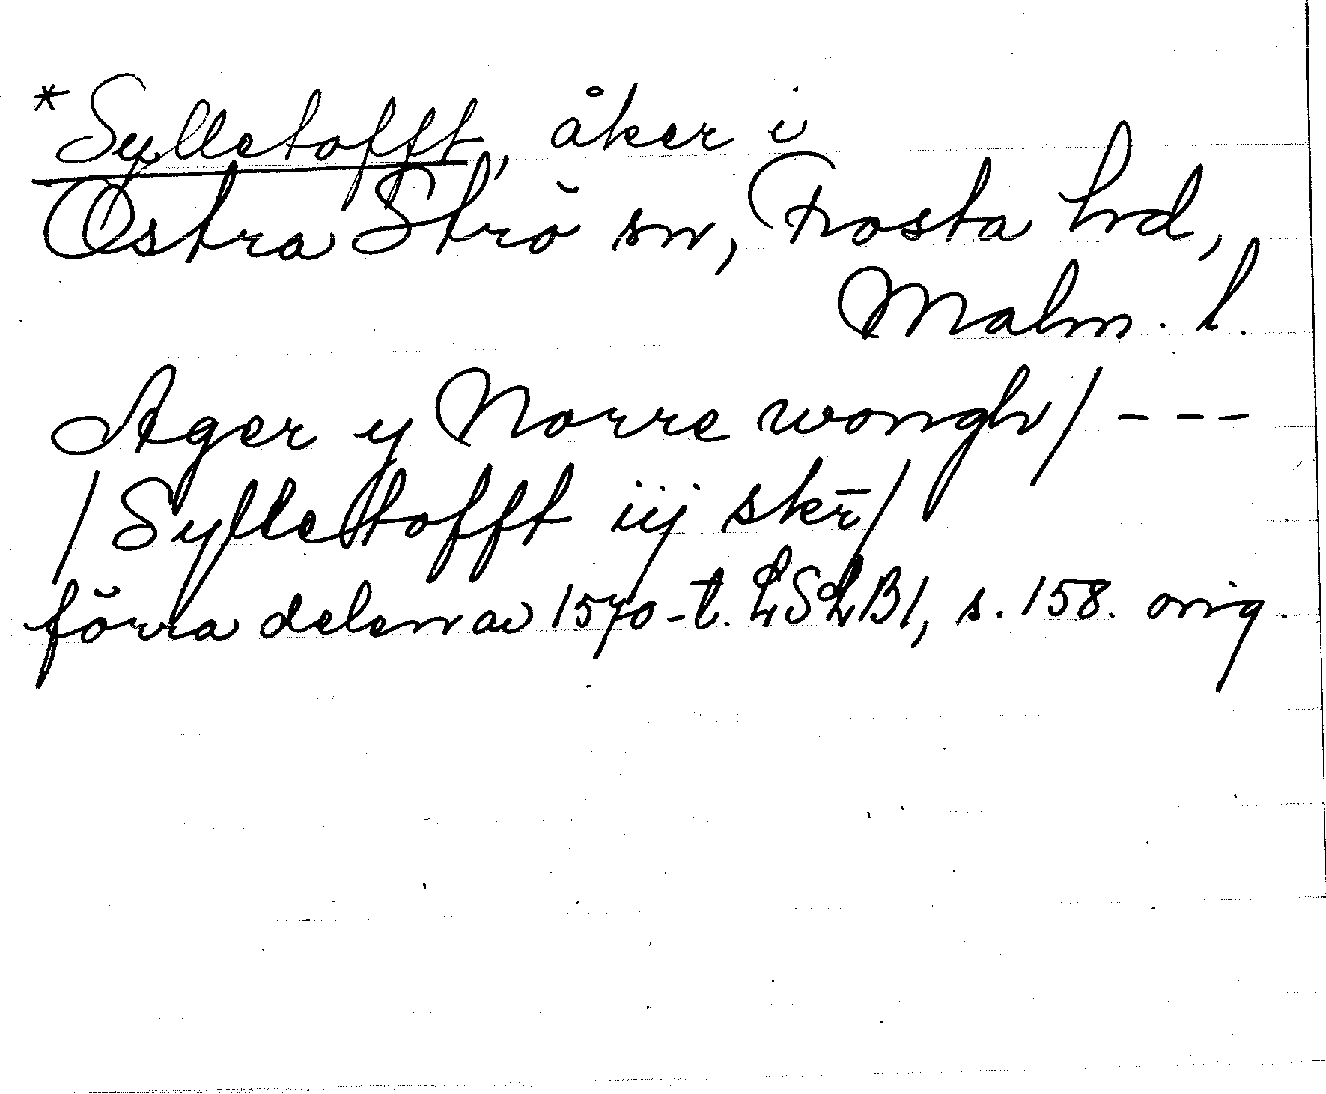 *Sylletofft, åker i
Östra Strö sn, Frosta hd,
Malm. l.
Ager y Norre wongh / ---
/ Sylletofft iij skr̄ /
förra delen av 1570-t. LSLB1, s. 158. orig.